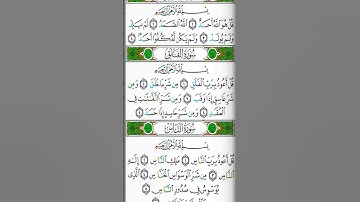 بِسْمِ اللَّهِ الرَّحْمَٰنِ الرَّحِيمِ
قُلْ هُوَ اللَّهُ أَحَدٌ ١ اللَّهُ الصَّمَدُ ٢ لَمْ يَلِدْ
وَلَمْ يُولَدْ ٣ وَلَمْ يَكُن لَّهُ كُفُوًا أَحَدٌ ٤
سُورَةُ الْفَلَقِ
بِسْمِ اللَّهِ الرَّحْمَٰنِ الرَّحِيمِ
قُلْ أَعُوذُ بِرَبِّ الْفَلَقِ ١ مِن شَرِّ مَا خَلَقَ ٢ وَمِن
شَرِّ غَاسِقٍ إِذَا وَقَبَ ٣ وَمِن شَرِّ النَّفَّاثَاتِ فِي
الْعُقَدِ ٤ وَمِن شَرِّ حَاسِدٍ إِذَا حَسَدَ ٥
سُورَةُ النَّاسِ
بِسْمِ اللَّهِ الرَّحْمَٰنِ الرَّحِيمِ
قُلْ أَعُوذُ بِرَبِّ النَّاسِ ١ مَلِكِ النَّاسِ ٢ إِلَٰهِ
النَّاسِ ٣ مِن شَرِّ الْوَسْوَاسِ الْخَنَّاسِ ٤ الَّذِي
يُوَسْوِسُ فِي صُدُورِ النَّاسِ ٥